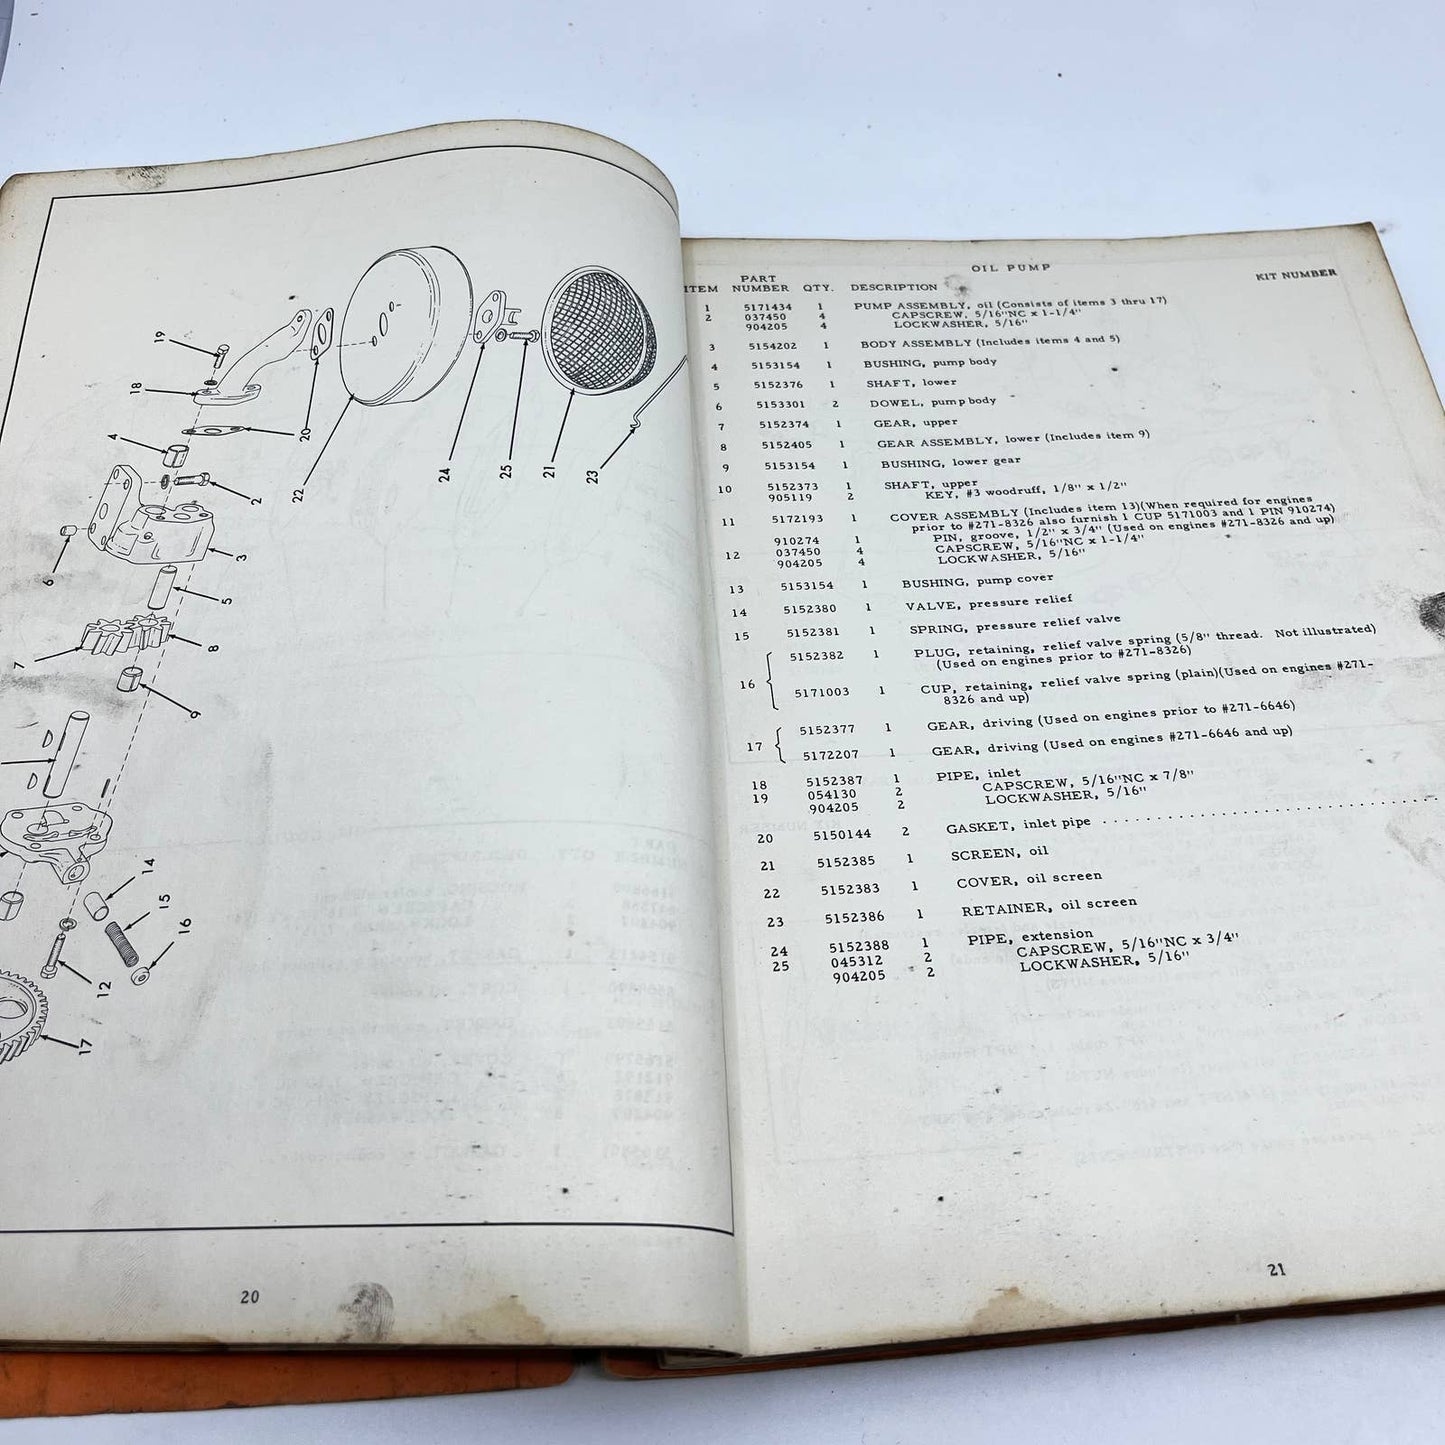 19
18
4
20
2
22
24
25
21
23
6
3
5
7
8
9
14
15
16
12
17
20
OIL PUMP
ITEM PART NUMBER QTY. DESCRIPTION KIT NUMBER
1 5171434 1 PUMP ASSEMBLY, oil (Consists of items 3 thru 17)
2 037450 4 CAPSCREW, 5/16"NC x 1-1/4"
904205 4 LOCKWASHER, 5/16"
3 5154202 1 BODY ASSEMBLY (Includes items 4 and 5)
4 5153154 1 BUSHING, pump body
5 5152376 1 SHAFT, lower
6 5153301 2 DOWEL, pump body
7 5152374 1 GEAR, upper
8 5152405 1 GEAR ASSEMBLY, lower (Includes item 9)
9 5153154 1 BUSHING, lower gear
10 5152373 1 SHAFT, upper
905119 2 KEY, #3 woodruff, 1/8" x 1/2"
11 5172193 1 COVER ASSEMBLY (Includes item 13)(When required for engines
prior to #271-8326 also furnish 1 CUP 5171003 and 1 PIN 910274)
910274 1 PIN, groove, 1/2" x 3/4" (Used on engines #271-8326 and up)
12 037450 4 CAPSCREW, 5/16"NC x 1-1/4"
904205 4 LOCKWASHER, 5/16"
13 5153154 1 BUSHING, pump cover
14 5152380 1 VALVE, pressure relief
15 5152381 1 SPRING, pressure relief valve
16 5152382 1 PLUG, retaining, relief valve spring (5/8" thread. Not illustrated)
(Used on engines prior to #271-8326)
5171003 1 CUP, retaining, relief valve spring (plain)(Used on engines #271-
8326 and up)
17 5152377 1 GEAR, driving (Used on engines prior to #271-6646)
5172207 1 GEAR, driving (Used on engines #271-6646 and up)
18 5152387 1 PIPE, inlet
19 054130 2 CAPSCREW, 5/16"NC x 7/8"
904205 2 LOCKWASHER, 5/16"
20 5150144 2 GASKET, inlet pipe . . . . . . . . . . . . . . . . . . . . . . . . . . . . . .
21 5152385 1 SCREEN, oil
22 5152383 1 COVER, oil screen
23 5152386 1 RETAINER, oil screen
24 5152388 1 PIPE, extension
25 045312 2 CAPSCREW, 5/16"NC x 3/4"
904205 2 LOCKWASHER, 5/16"
21